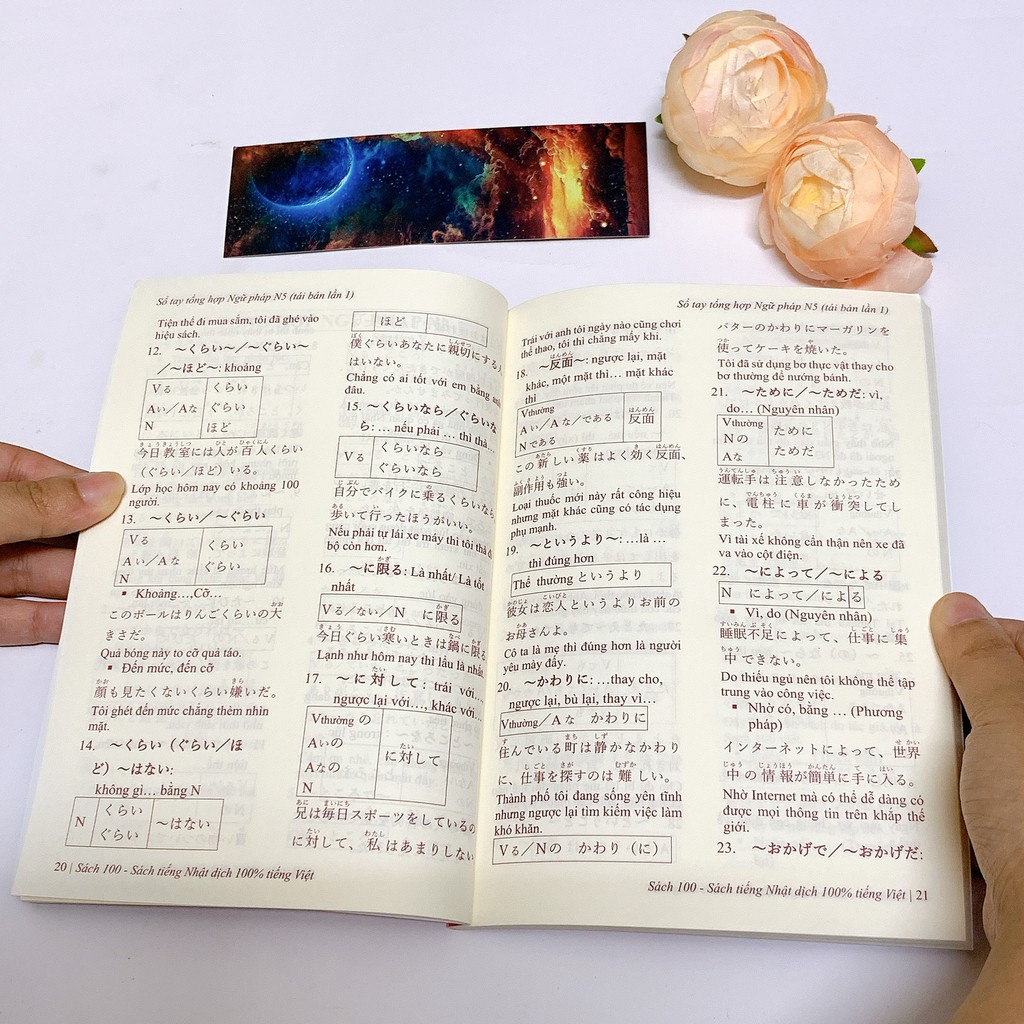 Sổ tay tổng hợp Ngữ pháp N5 (tái bản lần 1)
Tiện thể đi mua sắm, tôi đã ghé vào
hiệu sách.
12. ～くらい～/～ぐらい～
/～ほど～: khoảng
Vる くらい
Aい/Aな ぐらい
N ほど
今日教室には人が百人くらい
(ぐらい/ほど) いる。
Lớp học hôm nay có khoảng 100
người.
13. ～くらい/～ぐらい
Vる くらい
Aい/Aな ぐらい
N
▪ Khoảng…,Cỡ…
このボールはりんごくらいの大
きさだ。
Quả bóng này to cỡ quả táo.
▪ Đến mức, đến cỡ
顔も見たくないくらい嫌いだ。
Tôi ghét đến mức chẳng thèm nhìn
mặt.
14. ～くらい (ぐらい/ほ
ど) ～はない:
không gì… bằng N
N くらい ～はない
ぐらい
ほど
僕ぐらいあなたに親切にする人
はいない。
Chẳng có ai tốt với em bằng anh
đâu.
15. ～くらいなら/ぐらいな
ら: … nếu phải … thì thà…
Vる くらいなら
ぐらいなら
自分でバイクに乗るくらいなら
歩いて行ったほうがいい。
Nếu phải tự lái xe máy thì tôi thà đi
bộ còn hơn.
16. ～に限る: Là nhất/ Là tốt
nhất
Vる/ない/N に限る
今日ぐらい寒いときは鍋に限る
Lạnh như hôm nay thì lẩu là nhất.
17. ～に対して: trái với…
ngược lại với…, khác với…
Vthường の
Aいの
Aなの
N
に対して
兄は毎日スポーツをしているの
に対して、私はあまりしない
20 | Sách 100 - Sách tiếng Nhật dịch 100% tiếng Việt
Sổ tay tổng hợp Ngữ pháp N5 (tái bản lần 1)
Trái với anh tôi ngày nào cũng chơi
thể thao, tôi thì chẳng mấy khi.
18. ～反面～: ngược lại, mặt
khác, một mặt thì… mặt khác
thì
Vthường
Aい/Aな/である 反面
Nである
この新しい薬はよく効く反面、
副作用も強い。
Loại thuốc mới này rất công hiệu
nhưng mặt khác cũng có tác dụng
phụ mạnh.
19. ～というより～: …là …
thì đúng hơn
Thể thường というより
彼女は恋人というよりお前の
お母さんよ。
Cô ta là mẹ thì đúng hơn là người
yêu mày đấy.
20. ～かわりに: …thay cho,
ngược lại, bù lại, thay vì…
Vthường/Aな かわりに
住んでいる町は静かなかわり
に、仕事を探すのは難しい。
Thành phố tôi đang sống yên tĩnh
nhưng ngược lại tìm kiếm việc làm
khó khăn.
Vる/Nの かわり (に)
バターのかわりにマーガリンを
使ってケーキを焼いた。
Tôi đã sử dụng bơ thực vật thay cho
bơ thường để nướng bánh.
21. ～ために/～ためだ: vì,
do… (Nguyên nhân)
Vthường ために
Nの ためだ
Aな
運転手は注意しなかったため
に、電柱に車が衝突してし
まった。
Vì tài xế không cẩn thận nên xe đã
va vào cột điện.
22. ～によって/～による
N によって/による
▪ Vì, do (Nguyên nhân)
睡眠不足によって、仕事に集
中できない。
Do thiếu ngủ nên tôi không thể tập
trung vào công việc.
▪ Nhờ có, bằng … (Phương
pháp)
インターネットによって、世界
中の情報が簡単に手に入る。
Nhờ Internet mà có thể dễ dàng có
được mọi thông tin trên khắp thế
giới.
23. ～おかげで/～おかげだ:
Sách 100 - Sách tiếng Nhật dịch 100% tiếng Việt | 21